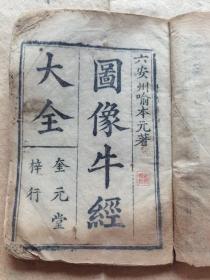 六安州喻本元著
圖像牛經
大全
奎元堂
梓行